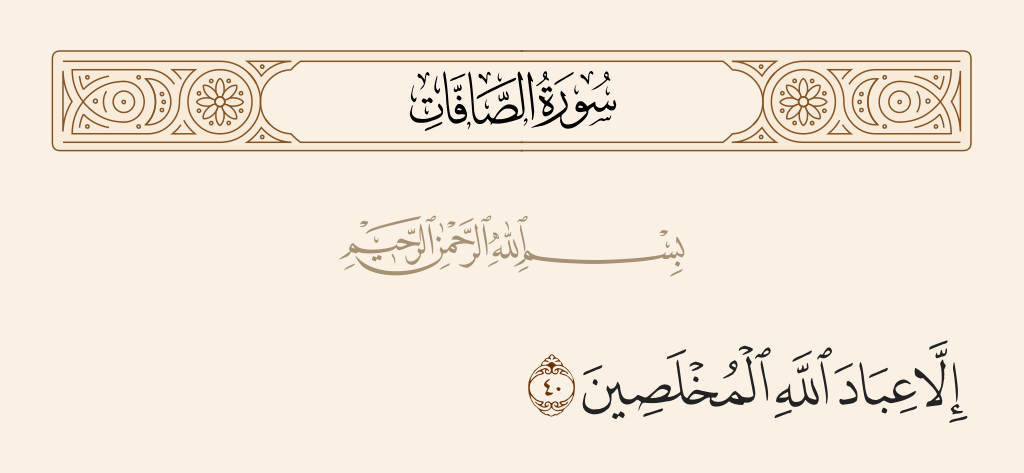 سُورَةُ الصَّافَّاتِ
بِسْمِ ٱللَّهِ ٱلرَّحْمَٰنِ ٱلرَّحِيمِ
إِلَّا عِبَادَ ٱللَّهِ ٱلْمُخْلَصِينَ ٤٠